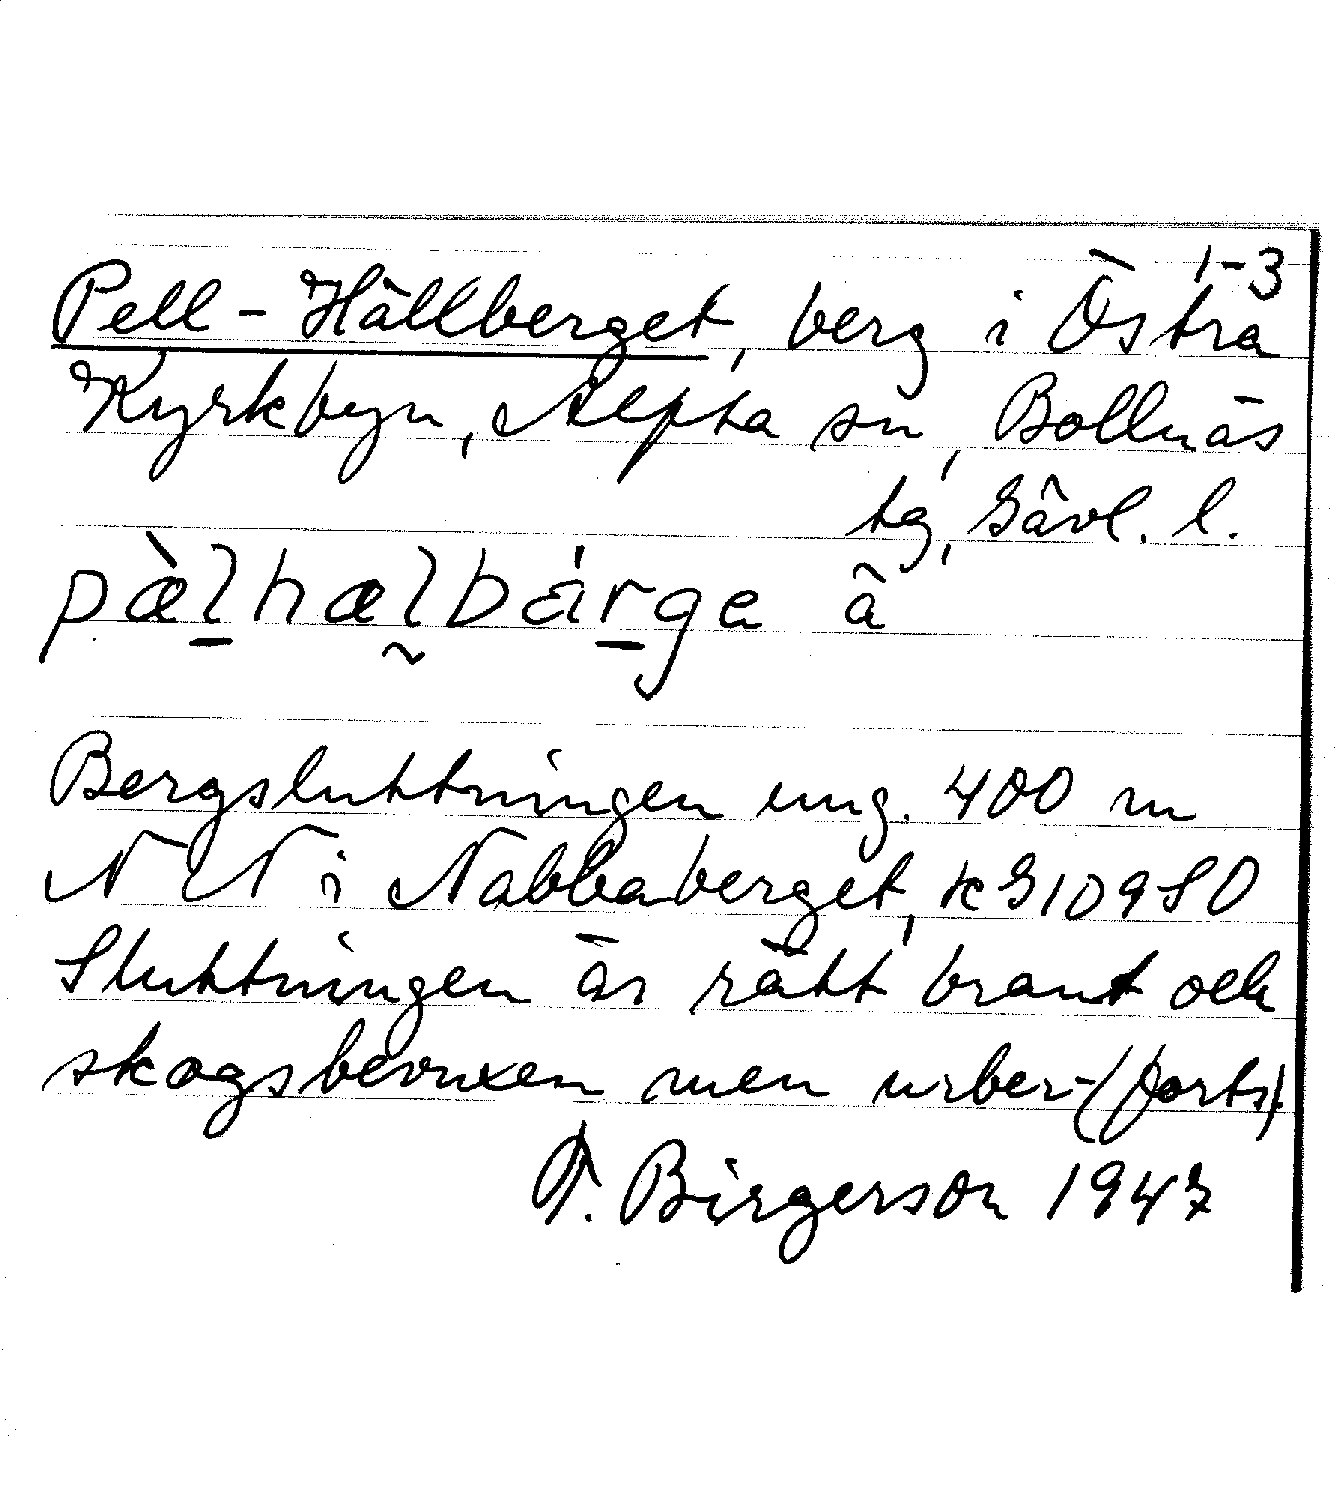 1-3
Pell-Hällberget, berg i Östra
Kyrkbyn, Alfta sn, Bollnäs
tg, Gävl. l.
pæ̀l̲hæl̰bárg̲e ä
Bergsluttningen ung. 400 m
N N i Nabbaberget, k G109SO
Sluttningen är rätt brant och
skogsbevuxen men urber-(forts).
F. Birgerson 1947